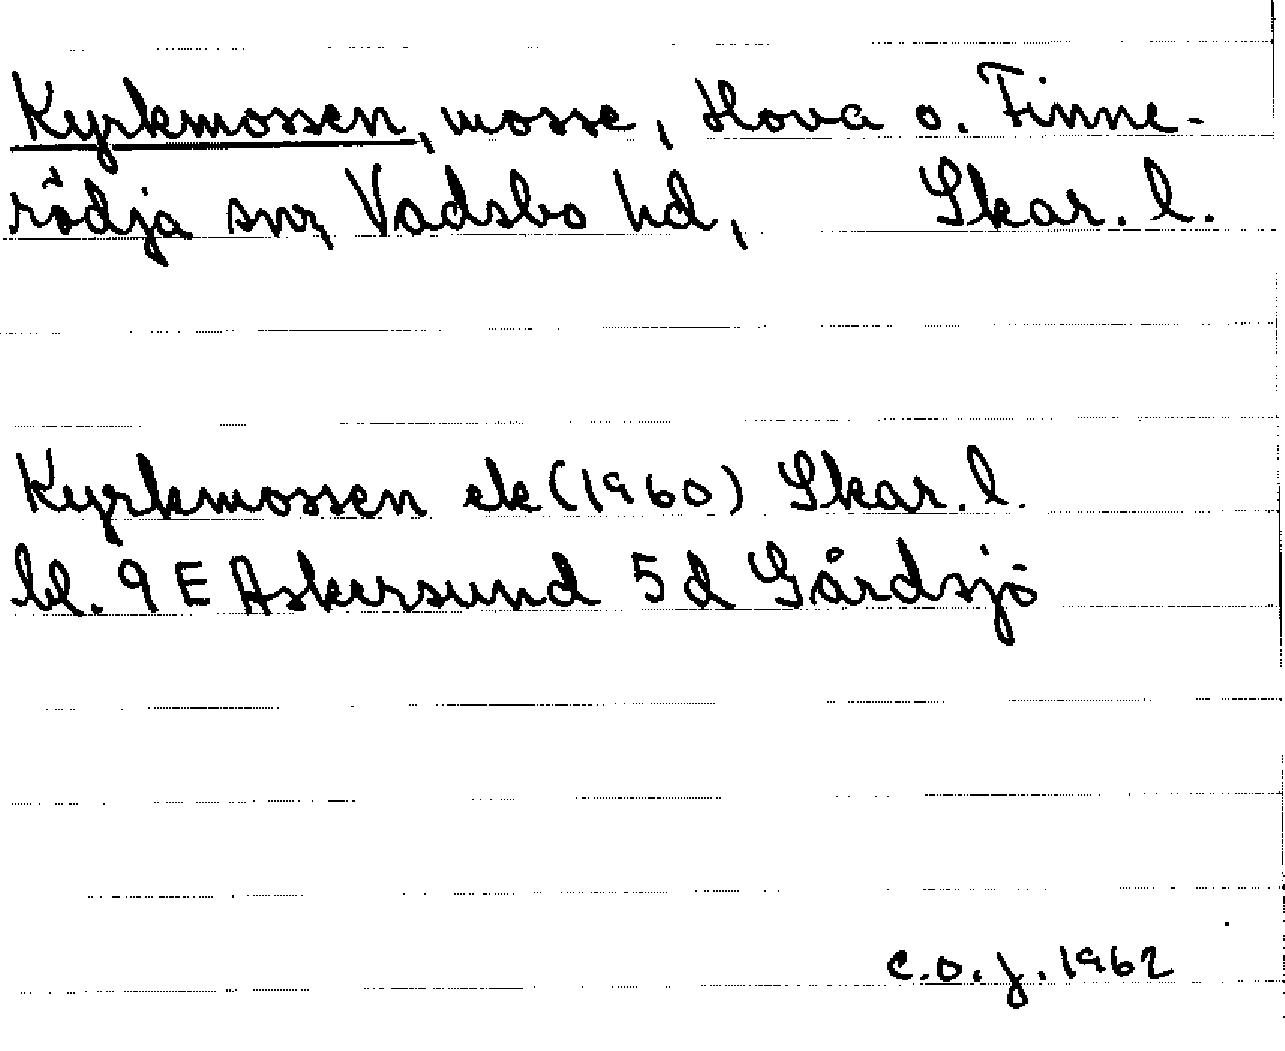 Kyrkmossen, mosse, Hova o. Finne-
rödja snr, Vadsbo hd, Skar. l.
Kyrkmossen ek (1960) Skar. l.
bl. 9 E Askersund 5 d Gårdsjö
C.O.J. 1962